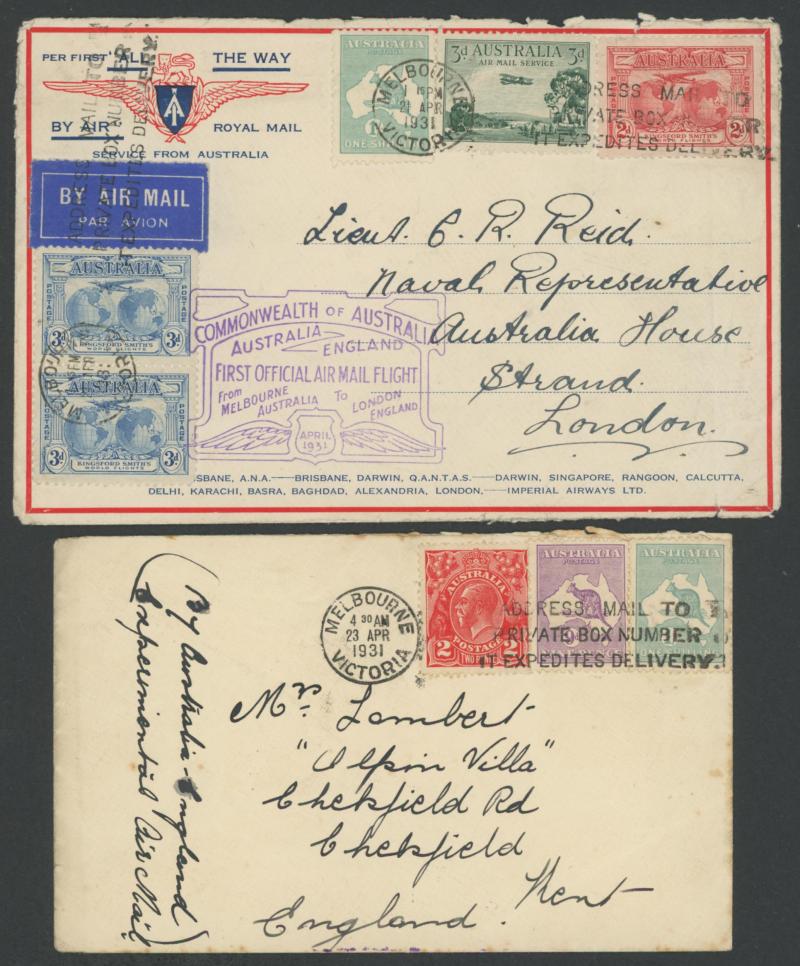 PER FIRST "ALL THE WAY
BY AIR" ROYAL MAIL
SERVICE FROM AUSTRALIA
BY AIR MAIL
PAR AVION
ADDRESS MAIL TO
PRIVATE BOX NUMBER
IT EXPEDITES DELIVERY.
AUSTRALIA
POSTAGE
ONE SHILLING
MELBOURNE
1 15PM
21 APR
1931
VICTORIA
3d AUSTRALIA 3d
AIR MAIL SERVICE
AUSTRALIA
2d 2d
KINGSFORD SMITH'S
WORLD FLIGHTS
ADDRESS MAIL TO
PRIVATE BOX
IT EXPEDITES DELIVERY.
Lieut. C. R. Reid.
Naval Representative
Australia House
Strand.
London.
AUSTRALIA
POSTAGE POSTAGE
3d 3d
KINGSFORD SMITH'S
WORLD FLIGHTS
AUSTRALIA
POSTAGE POSTAGE
3d 3d
KINGSFORD SMITH'S
WORLD FLIGHTS
COMMONWEALTH OF AUSTRALIA
AUSTRALIA ENGLAND
FIRST OFFICIAL AIR MAIL FLIGHT
From MELBOURNE AUSTRALIA To LONDON ENGLAND
APRIL
1931
ISBANE, A.N.A.—BRISBANE, DARWIN, Q.A.N.T.A.S.—DARWIN, SINGAPORE, RANGOON, CALCUTTA,
DELHI, KARACHI, BASRA, BAGHDAD, ALEXANDRIA, LONDON,—IMPERIAL AIRWAYS LTD.
(By Australia-England
Experimental Air Mail)
MELBOURNE
4 30AM
23 APR
1931
VICTORIA
AUSTRALIA
POSTAGE
2 TWO PENCE 2
AUSTRALIA
POSTAGE
AUSTRALIA
POSTAGE
ONE SHILLING
ADDRESS MAIL TO
PRIVATE BOX NUMBER
IT EXPEDITES DELIVERY.
Mrs. Lambert
"Alpin Villa"
Chelsfield Rd
Chelsfield
Kent
England.